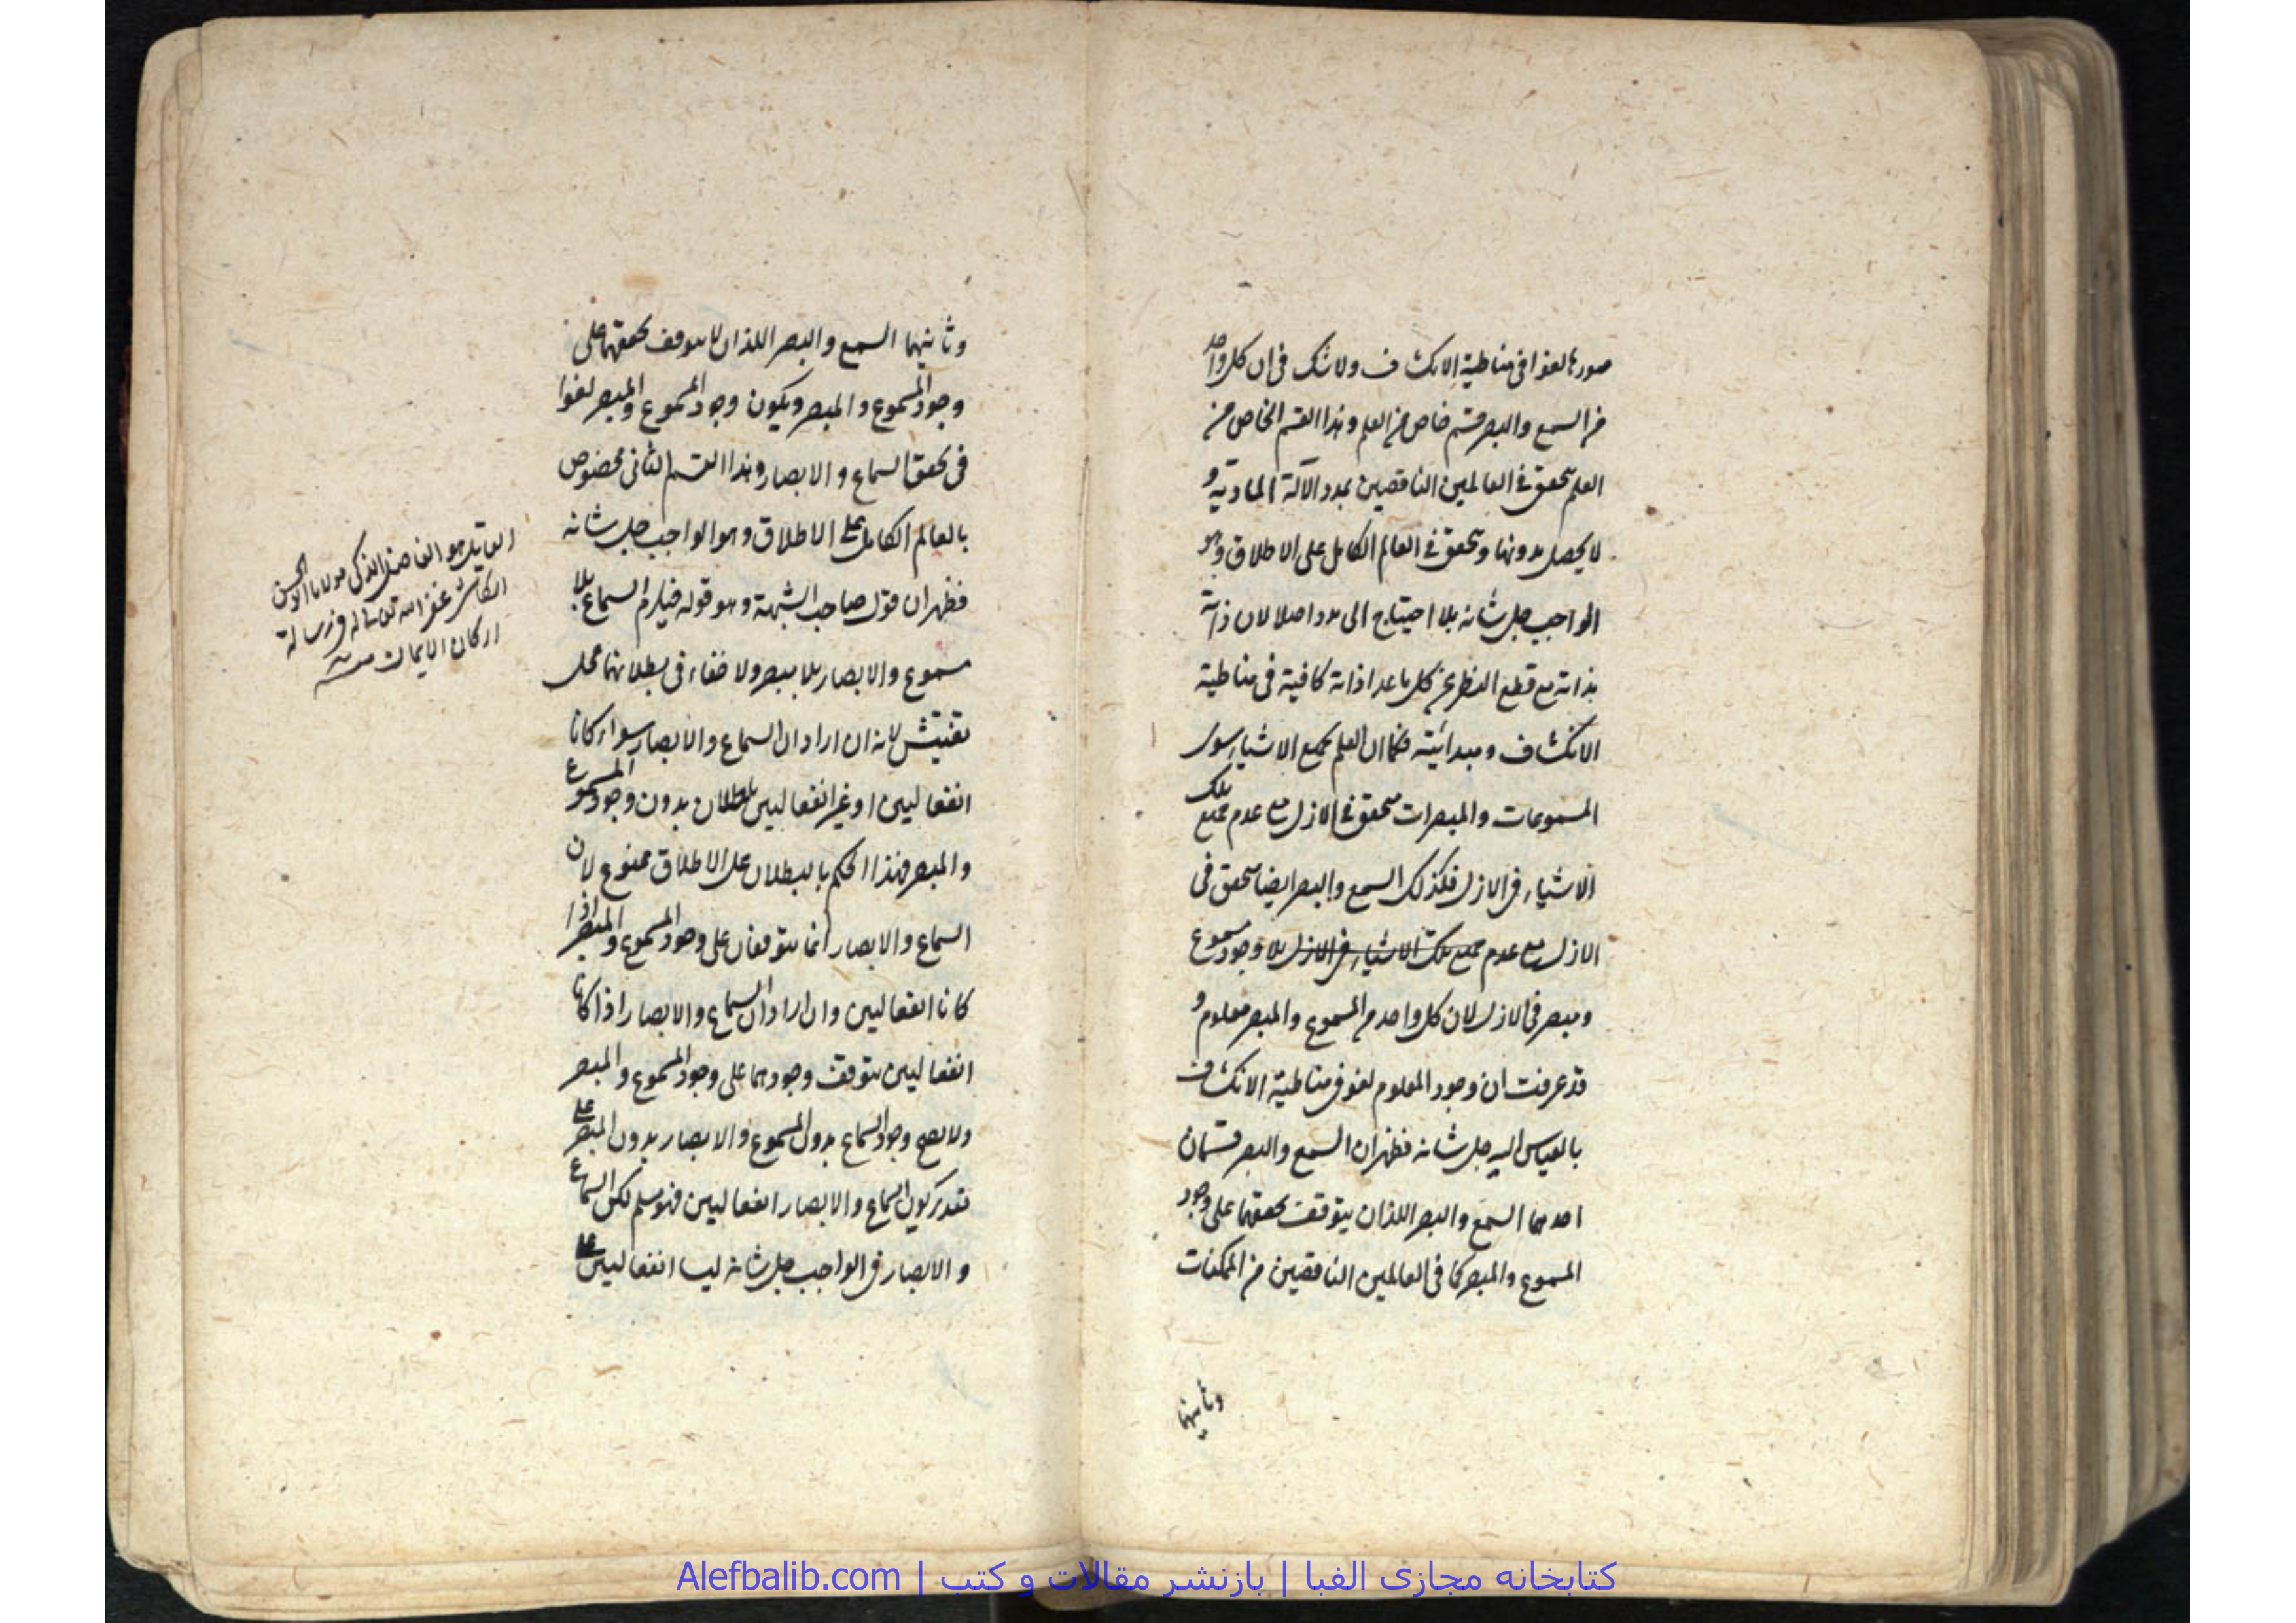 صورها لغوا فی مناطیة الانکشاف ولا شک فی ان کل واحد
من السمع والبصر قسم خاص من العلم وهذا القسم الخاص من
العلم یتحقق فی العالمین الناقصین بمدد الآلة المادیة و
لا یحصل بدونها ویتحقق فی العالم الکامل علی الاطلاق وهو
الواجب جل شانه بلا احتیاج الی مدد اصلا لان ذاته
بذاته مع قطع النظر عن کل ما عدا ذاته کافیة فی مناطیة
الانکشاف ومبدائیته فکما ان العلم بجمیع الاشیاء سوی
المسموعات والمبصرات متحقق فی الازل مع عدم جمیع تلک
الاشیاء فی الازل فکذلک السمع والبصر ایضا متحقق فی
الازل مع عدم جمیع تلک الاشیاء فی الازل بلا وجود مسموع
ومبصر فی الازل لان کل واحد من المسموع والمبصر معلوم و
قد عرفت ان وجود المعلوم لغو فی مناطیة الانکشاف
بالقیاس الیه جل شانه فظهر ان السمع والبصر قسمان
احدهما السمع والبصر اللذان یتوقف تحققهما علی وجود
المسموع والمبصر کما فی العالمین الناقصین من الممکنات
وثانیهما
وثانیهما السمع والبصر اللذان لا یتوقف تحققهما علی
وجود المسموع والمبصر ویکون وجود المسموع والمبصر لغوا
فی تحقق السماع والابصار وهذا القسم الثانی مخصوص
بالعالم الکامل علی الاطلاق وهو الواجب جل شانه
فظهر ان قول صاحب الشبهة وهو قوله فیلزم السماع بلا
مسموع والابصار بلا مبصر ولا خفاء فی بطلانهما محل
تفتیش لانه ان اراد ان السماع والابصار سواء کانا
انفعالیین او غیر انفعالیین باطلان بدون وجود المسموع
والمبصر فهذا الحکم بالبطلان علی الاطلاق ممنوع لان
السماع والابصار انما یتوقفان علی وجود المسموع والمبصر اذا
کانا انفعالیین وان اراد ان السماع والابصار اذا کانا
انفعالیین یتوقف وجودهما علی وجود المسموع والمبصر
ولا یصح وجود السماع بدون المسموع والابصار بدون المبصر علی
تقدیر کون السماع والابصار انفعالیین فهو مسلم لکن السماع
والابصار فی الواجب جل شانه لیسا انفعالیین علی
القایل هو الفاضل الذکی مولانا ابو الحسن
الکاشی غفر الله تعالی له فی رسالة
ارکان الایمان منه
کتابخانه مجازی الفبا | بازنشر مقالات و کتب | Alefbalib.com